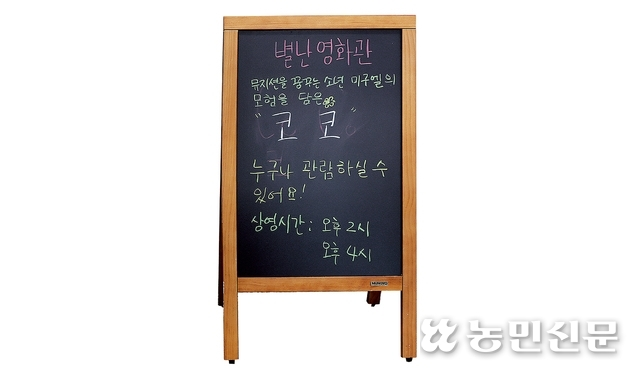 별난영화관
뮤지션을 꿈꾸는 소년 미구엘의
모험을 담은
"코코"
누구나 관람하실 수
있어요!
상영시간: 오후 2시
오후 4시
농민신문